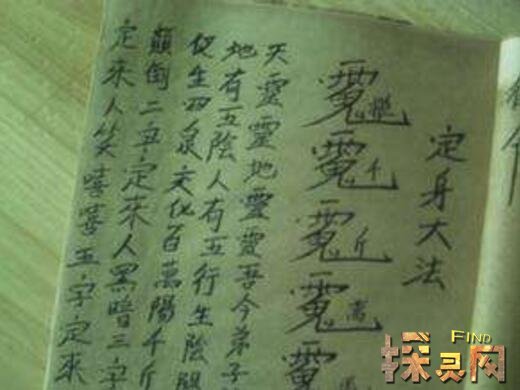 定身大法
天靈靈地靈靈吾今弟子
地有五陰人有五行生陰陽
生四泉文化百萬陽千斤
顛倒二字定來人黑暗三字
定來人笑嘻嘻五字定來
FIND
探灵网